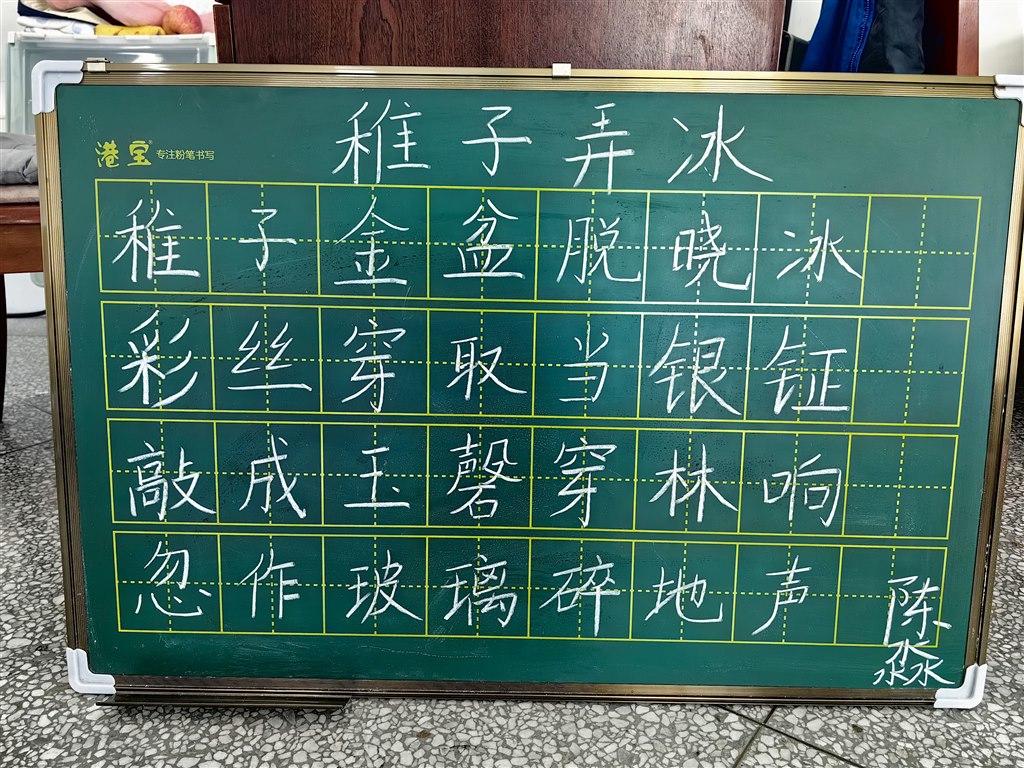 稚子弄冰
港宝® 专注粉笔书写
稚子金盆脱晓冰
彩丝穿取当银钲
敲成玉磬穿林响
忽作玻璃碎地声
陈
淼